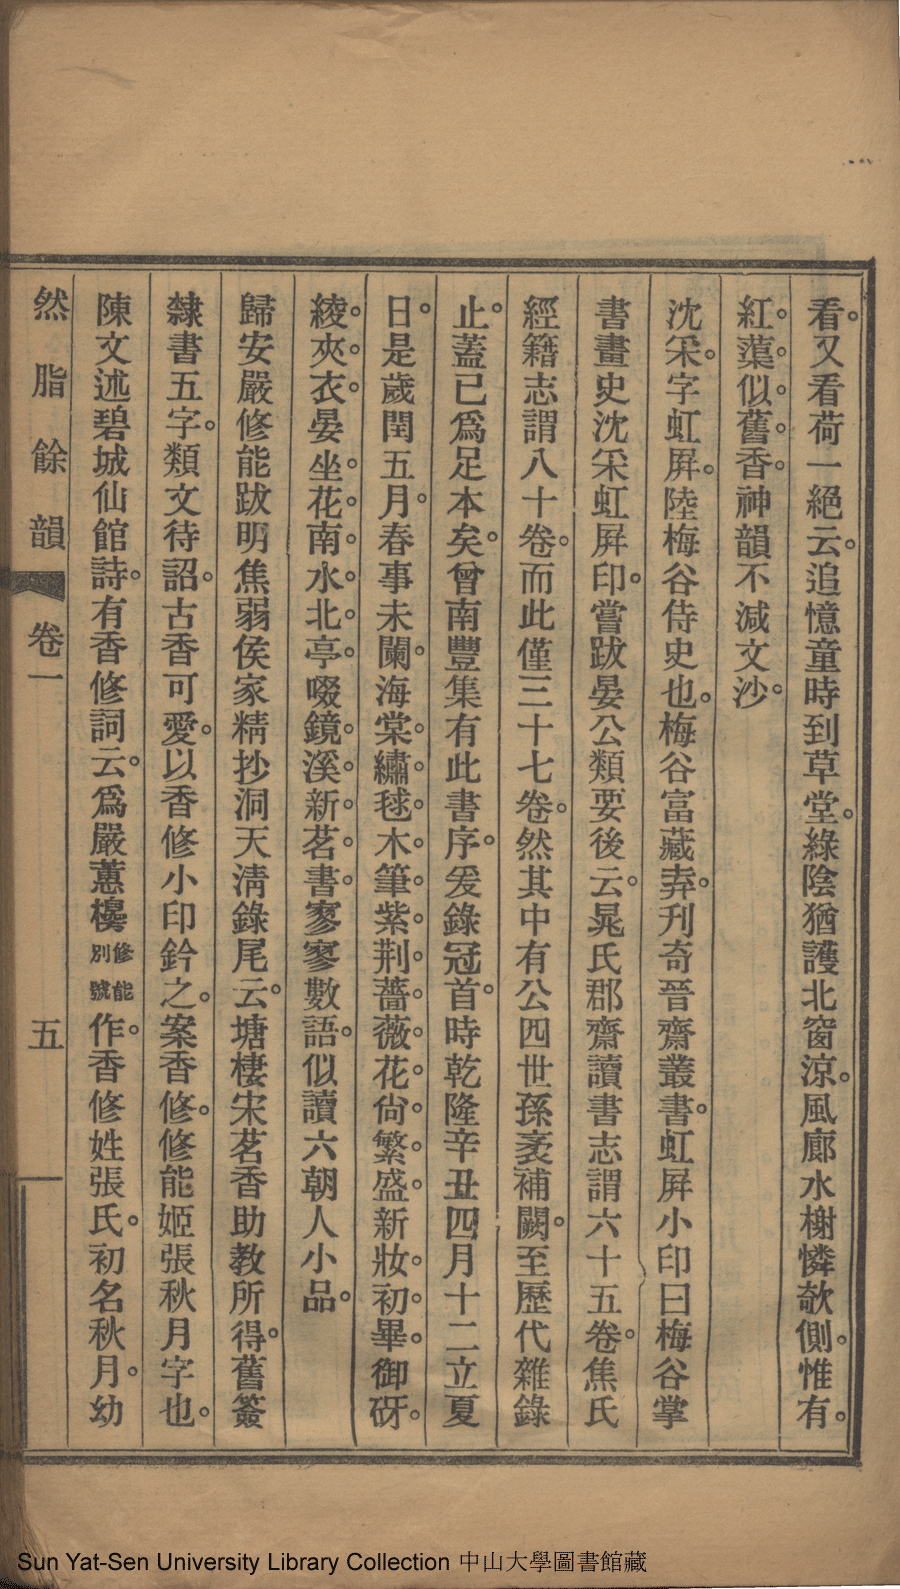 看。又看荷一絕云。追憶童時到草堂。綠陰猶護北窗涼。風廊水榭憐欹側。惟有。
紅蕖。似。舊。香。神韻不減文沙。
沈采。字虹屛。陸梅谷侍史也。梅谷富藏弆。刊奇晉齋叢書。虹屛小印曰梅谷掌
書畫史沈采虹屛印。嘗跋晏公類要後云。晁氏郡齋讀書志謂六十五卷。焦氏
經籍志謂八十卷。而此僅三十七卷。然其中有公四世孫袤補闕。至歷代雜錄
止。蓋已爲足本矣。曾南豐集有此書序。爰錄冠首。時乾隆辛丑四月十二立夏
日。是歲閏五月。春事未闌。海棠。繡。毬。木。筆。紫。荆。薔。薇。花。尙。繁。盛。新妝。初。畢。御砑。
綾。夾。衣。晏坐。花。南。水。北。亭。啜鏡。溪。新。茗。書。寥寥數語。似讀六朝人小品。
歸安嚴修能跋明焦弱侯家精抄洞天淸錄尾云。塘棲宋茗香助教所得。舊簽
隸書五字。類文待詔。古香可愛。以香修小印鈐之。案香修。修能姬張秋月字也。
陳文述碧城仙館詩。有香修詞云。爲嚴蕙櫋修能別號作。香修姓張氏。初名秋月。幼
然脂餘韻 卷一 五
Sun Yat-Sen University Library Collection 中山大學圖書館藏